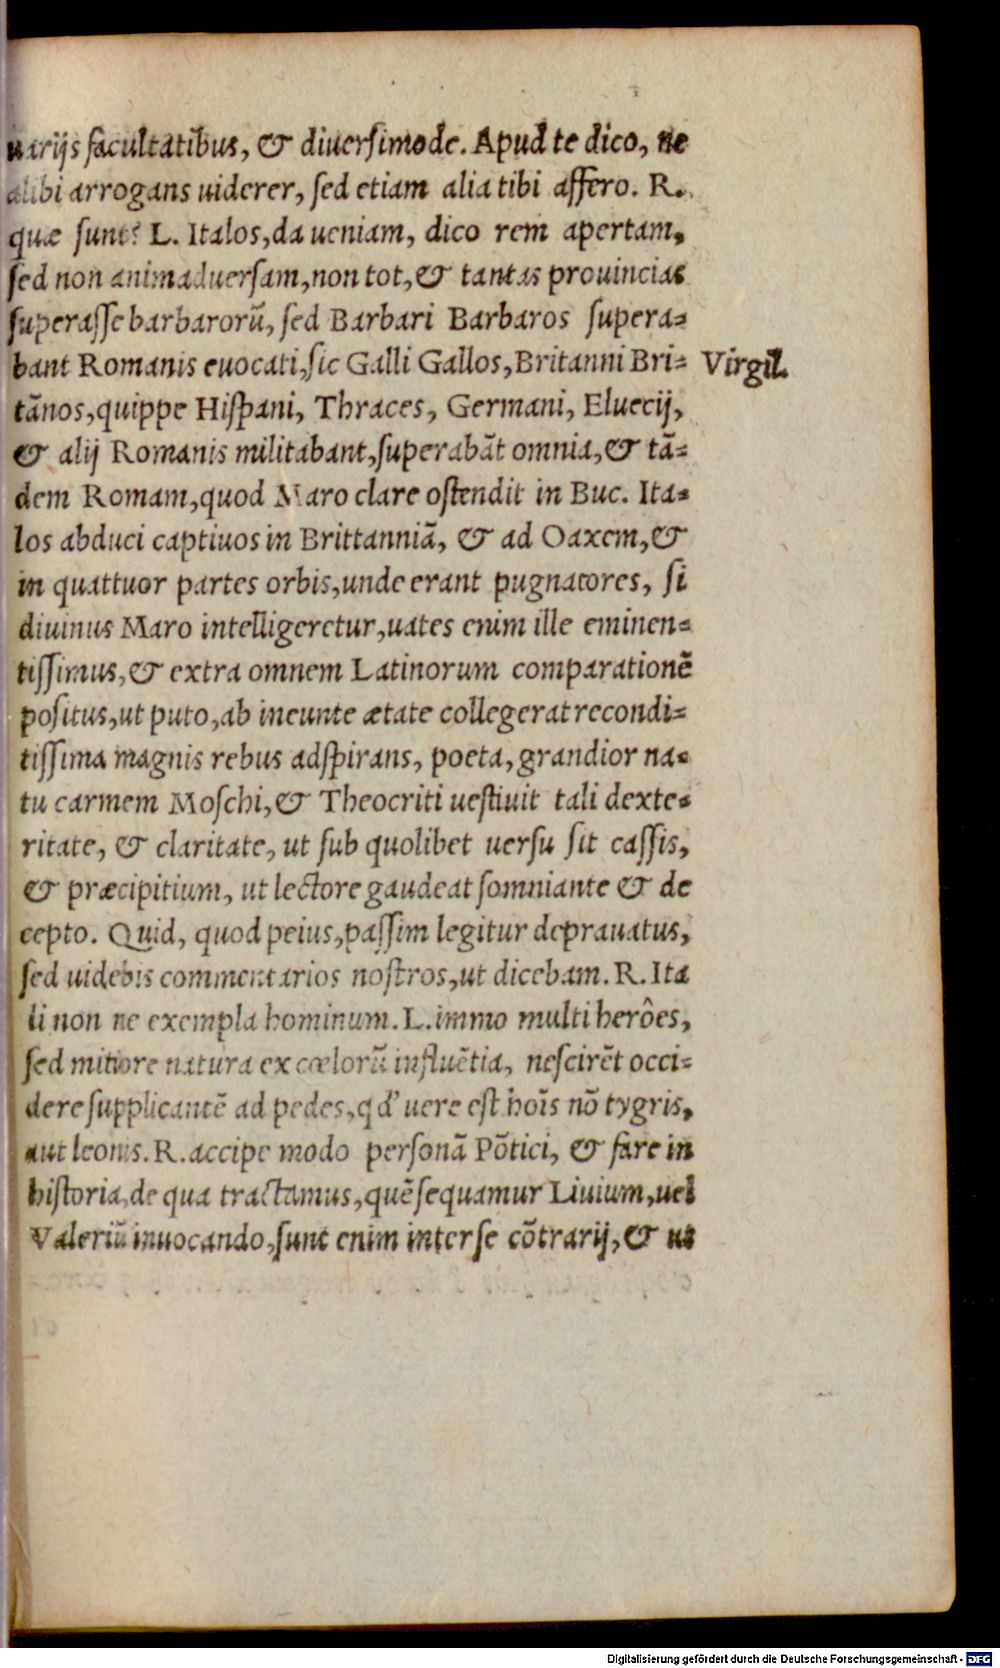 uarijs facultatibus, & diuersimode. Apud te dico, ne
alibi arrogans uiderer, sed etiam alia tibi affero. R.
quæ sunt? L. Italos, da ueniam, dico rem apertam,
sed non animaduersam, non tot, & tantas prouincias
superasse barbarorũ, sed Barbari Barbaros supera=
bant Romanis euocati, sic Galli Gallos, Britanni Bri=
Virgil.
tãnos, quippe Hispani, Thraces, Germani, Eluecij,
& alij Romanis militabant, superabãt omnia, & tã=
dem Romam, quod Maro clare ostendit in Buc. Ita=
los abduci captiuos in Brittanniã, & ad Oaxem, &
in quattuor partes orbis, unde erant pugnatores, si
diuinus Maro intelligeretur, uates enim ille eminen=
tissimus, & extra omnem Latinorum comparationẽ
positus, ut puto, ab ineunte ætate collegerat recondi=
tissima magnis rebus adspirans, poeta, grandior na=
tu carmem Moschi, & Theocriti uestiuit tali dexte=
ritate, & claritate, ut sub quolibet uersu sit cassis,
& præcipitium, ut lectore gaudeat somniante & de
cepto. Quid, quod peius, passim legitur deprauatus,
sed uidebis commentarios nostros, ut dicebam. R. Ita
li non ne exempla hominum. L. immo multi herôes,
sed mitiore natura ex cœlorũ influẽtia, nescirẽt occi=
dere supplicantẽ ad pedes, qd' uere est hoĩs nõ tygris,
aut leonis. R. accipe modo personã Põtici, & fare in
historia, de qua tractamus, quẽ sequamur Liuium, uel
Valeriũ inuocando, sunt enim inter se cõtrarij, & ut
Digitalisierung gefördert durch die Deutsche Forschungsgemeinschaft - DFG